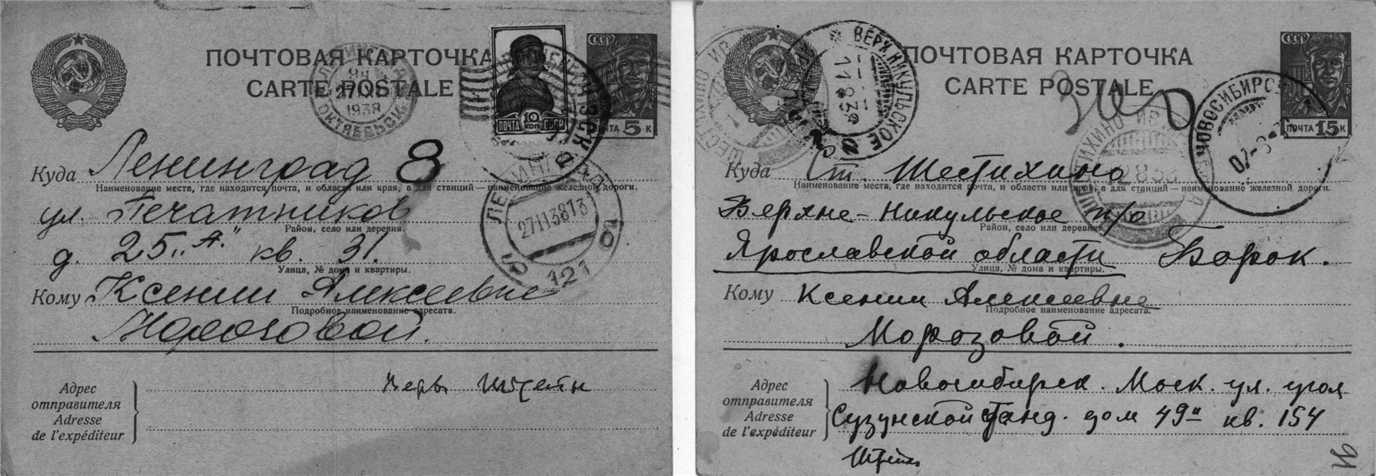 ПОЧТОВАЯ КАРТОЧКА
CARTE POSTALE
ПОЧТА 10 КОП. СССР
ПОЧТА 5 К
ЛЕНИНГРАД
1938
ОКТЯБРЬСК
27 11 38 13
121
Куда Ленинград 8
Наименование места, где находится почта, и области или края, а для станций — наименование железной дороги.
ул. Печатников
Район, село или деревня.
д. 25 "А" кв. 31.
Улица, № дома и квартиры.
Кому Ксении Алексеевне
Подробное наименование адресата.
Морозовой.
Адрес отправителя
Adresse de l'expéditeur
Веры Штейн
ПОЧТОВАЯ КАРТОЧКА
CARTE POSTALE
СССР
ПОЧТА 15 К
ВЕРХ.НИКУЛЬСКОЕ
НОВОСИБИРСК
Куда Ст. Шестихино
Наименование места, где находится почта, и области или края, а для станций — наименование железной дороги.
Верхне-Никульское п/о
Район, село или деревня.
Ярославской области Борок.
Улица, № дома и квартиры.
Кому Ксении Алексеевне
Подробное наименование адресата.
Морозовой.
Адрес отправителя
Adresse de l'expéditeur
Новосибирск. Моск. ул. угол
Сузунской дом 49 кв. 154
Штейн